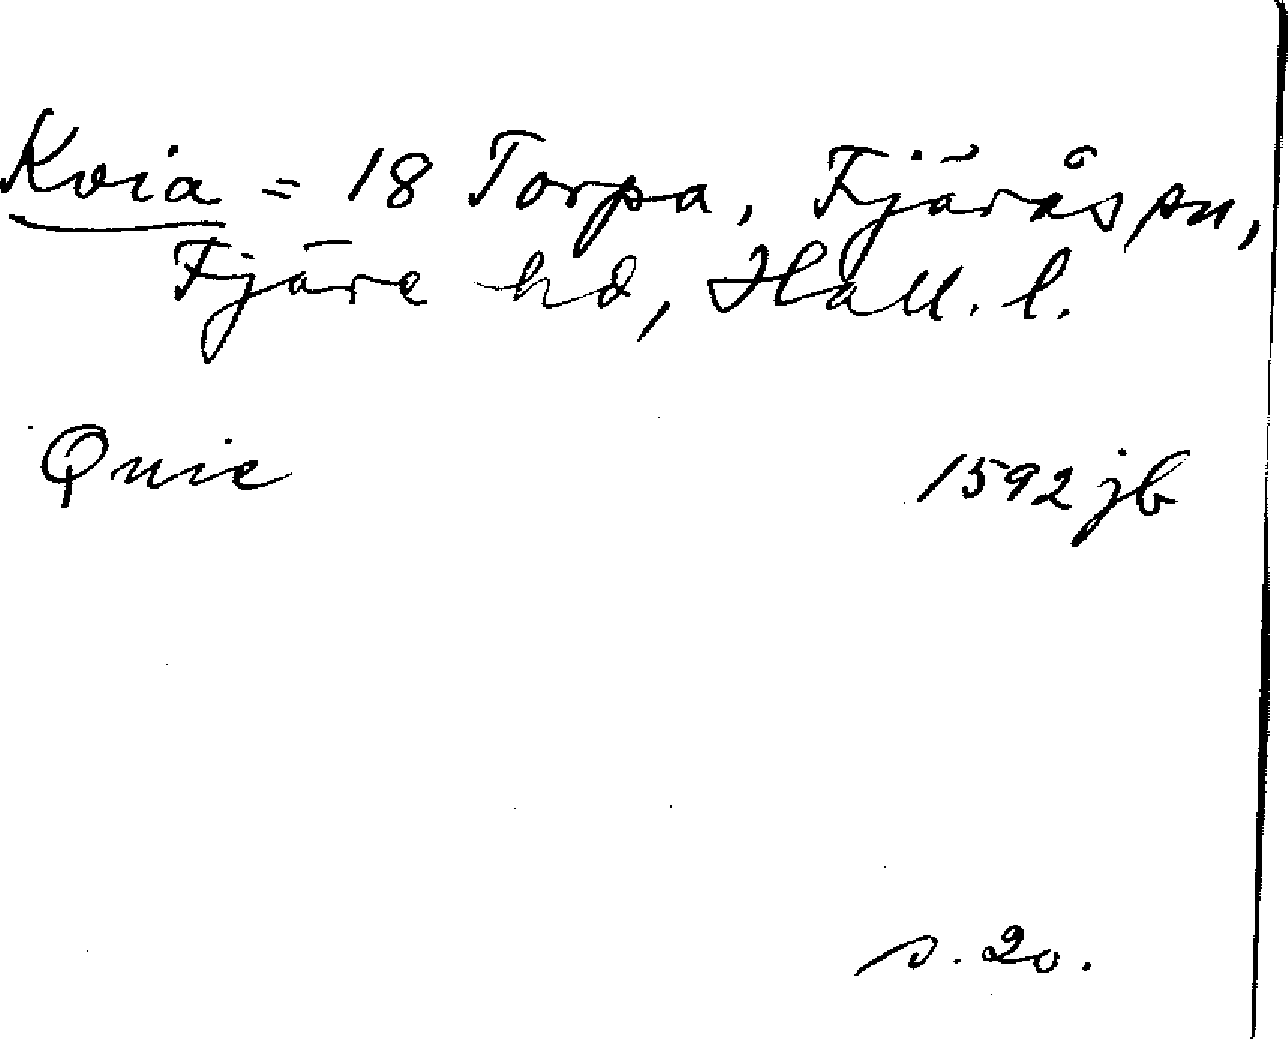 Kvia = 18 Torpa, Fjärås sn,
Fjäre hd, Hall. l.
Quie 1592 jb
s. 20.